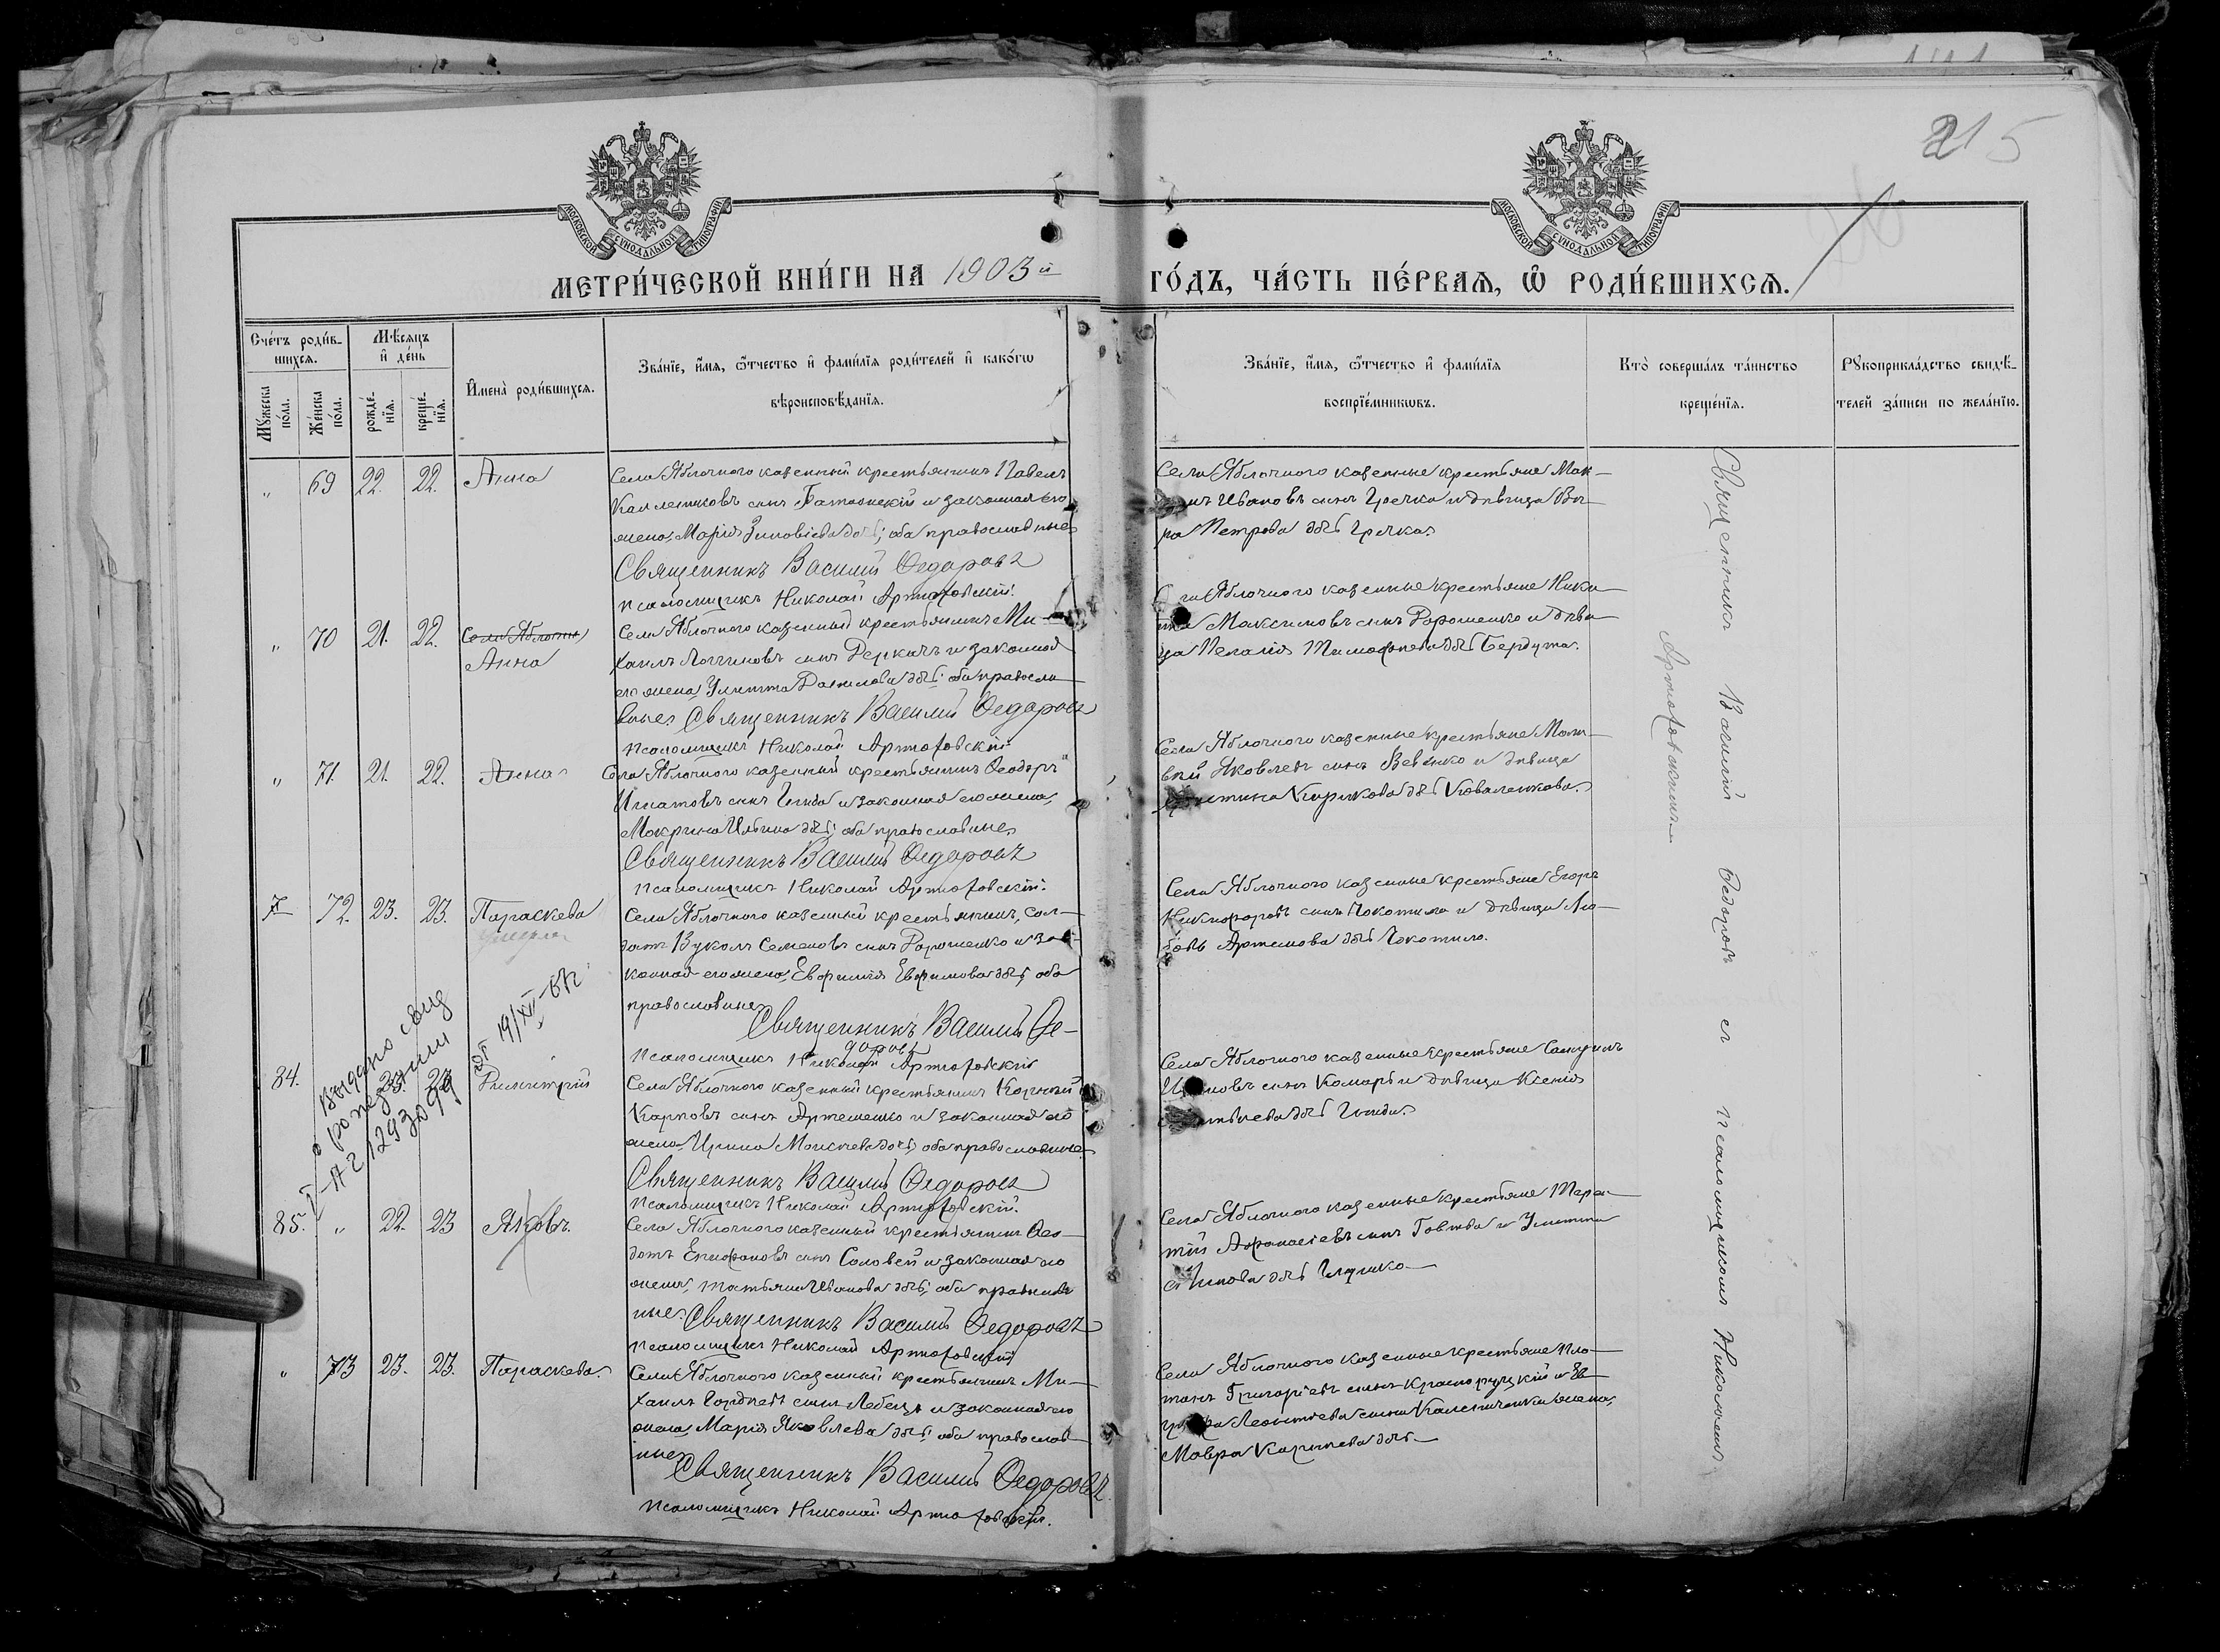 215
МОСКОВСКОЙ СѴНОДАЛЬНОЙ ТИПОГРАФІИ
МОСКОВСКОЙ СѴНОДАЛЬНОЙ ТИПОГРАФІИ
МЕТРИ́ЧЕСКОЙ КНИ́ГИ НА 1903й
ГО́ДЪ, ЧА́СТЬ ПЕ́РВАѦ, Ѡ҆ РОДИ́ВШИХСѦ.
Сче́тъ роди́в-
шихсѧ.
Мꙋ́жеска по́ла.
Же́нска по́ла.
Мѣ́сѧцъ
и҆ де́нь
рожде́-
нїѧ.
креще́-
нїѧ.
И҆мена̀ роди́вшихсѧ.
Зва́нїе, и҆́мѧ, ѻ҆́тчество и҆ фами́лїѧ роди́телей и҆ како́гѡ
вѣроисповѣ́данїѧ.
Зва́нїе, и҆́мѧ, ѻ҆́тчество и҆ фами́лїѧ
воспрїе́мникѡвъ.
Кто̀ соверша́лъ та́инство
креще́нїѧ.
Рꙋкоприкла́дство свидѣ́-
телей за́писи по жела́нїю.
„ 69 22. 22. Анна
Села Яблочного казенный крестьянинъ Павелъ
сынъ и законная его
жена, Марія Зиновіева дочь; оба православные
Священникъ Василій Ѳедоровъ
псаломщикъ Николай Артюховскій.
Села Яблочного казенные крестьяне Мак-
Ивановъ сынъ Гречка и дѣвица Вѣ-
ра Петрова дочь Гречка.
„ 70 21. 22. Села Яблочна
Анна
Села Яблочного казенный крестьянинъ Ми-
хаилъ Логгиновъ сынъ Деркачъ и законная
его жена, Улитта Данилова дочь; оба правосла-
вные Священникъ Василій Ѳедоровъ
псаломщикъ Николай Артюховскій
Яблочного казенные крестьяне Ники-
Максимовъ сынъ Дорошенко и дѣви-
ца Пелагія Тимофеева дочь Бердута.
„ 71. 21. 22. Анна
Села Яблочного казенный крестьянинъ Ѳеодоръ
Игнатовъ сынъ и законная его жена,
Мокрина дочь; оба православные
Священникъ Василій Ѳедоровъ
псаломщикъ Николай Артюховскій.
Села Яблочного казенные крестьяне Мат-
вѣй Яковлевъ сынъ и дѣвица
Кирикова дочь Коваленкова.
72. 23. 23. Параскева
умерла
Села Яблочного казенный крестьянинъ, сол-
датъ Вуколъ Семеновъ сынъ Дорошенко и за-
конная его жена, Евфимія Евфимова дочь; оба
православные
Священникъ Василій Ѳе-
доровъ
псаломщикъ Николай Артюховскій
Села Яблочного казенные крестьяне Егоръ
Никифоровъ сынъ Чокотило и дѣвица Лю-
бовь Артемова дочь Чокотило.
выдано свид
о рождении
I-АГ 129 30 99
от 19/XI-58г.
84. 23. 23. Димитрій
Села Яблочного казенный крестьянинъ Корнилій
Карповъ сынъ Артеменко и законная его
жена, Ирина Моисеева дочь; оба православные
Священникъ Василій Ѳедоровъ
псаломщикъ Николай Артюховскій.
Села Яблочного казенные крестьяне Самуилъ
Ивановъ сынъ Комарь и дѣвица Ксенія
85. „ 22. 23 Яковъ.
Села Яблочного казенный крестьянинъ Ѳео-
дотъ Епифановъ сынъ Соловей и законная его
жена, Татьяна Иванова дочь; оба православ-
ные. Священникъ Василій Ѳедоровъ
псаломщикъ Николай Артюховскій
Села Яблочного казенные крестьяне Терен-
тій Афанасіевъ сынъ Говтва и Улитта
„ 73 23. 23. Параскева.
Села Яблочного казенный крестьянинъ Ми-
хаилъ Гордѣевъ сынъ Лебедь и законная его
жена, Марія Яковлева дочь; оба православ-
ные
Священникъ Василій Ѳедоровъ.
псаломщикъ Николай Артюховскій.
Села Яблочного казенные крестьяне Пла-
тонъ Григорьевъ сынъ Краснорудкій и
Леонтіева сына жена,
Мавра дочь
Священникъ Василій Ѳедоровъ съ псаломщикомъ Николаемъ
Артюховскимъ